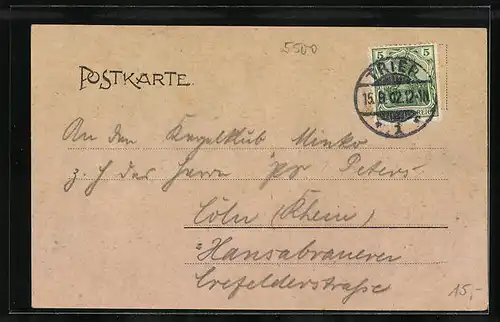 5500
5 5
POSTKARTE.
TRIER
15.8.02.12-1N
* 1 *
An den Kegelklub Minko
z. H des Herrn Peters
Cöln (Rhein)
Hansabrauerei
Crefelderstraße
15,-